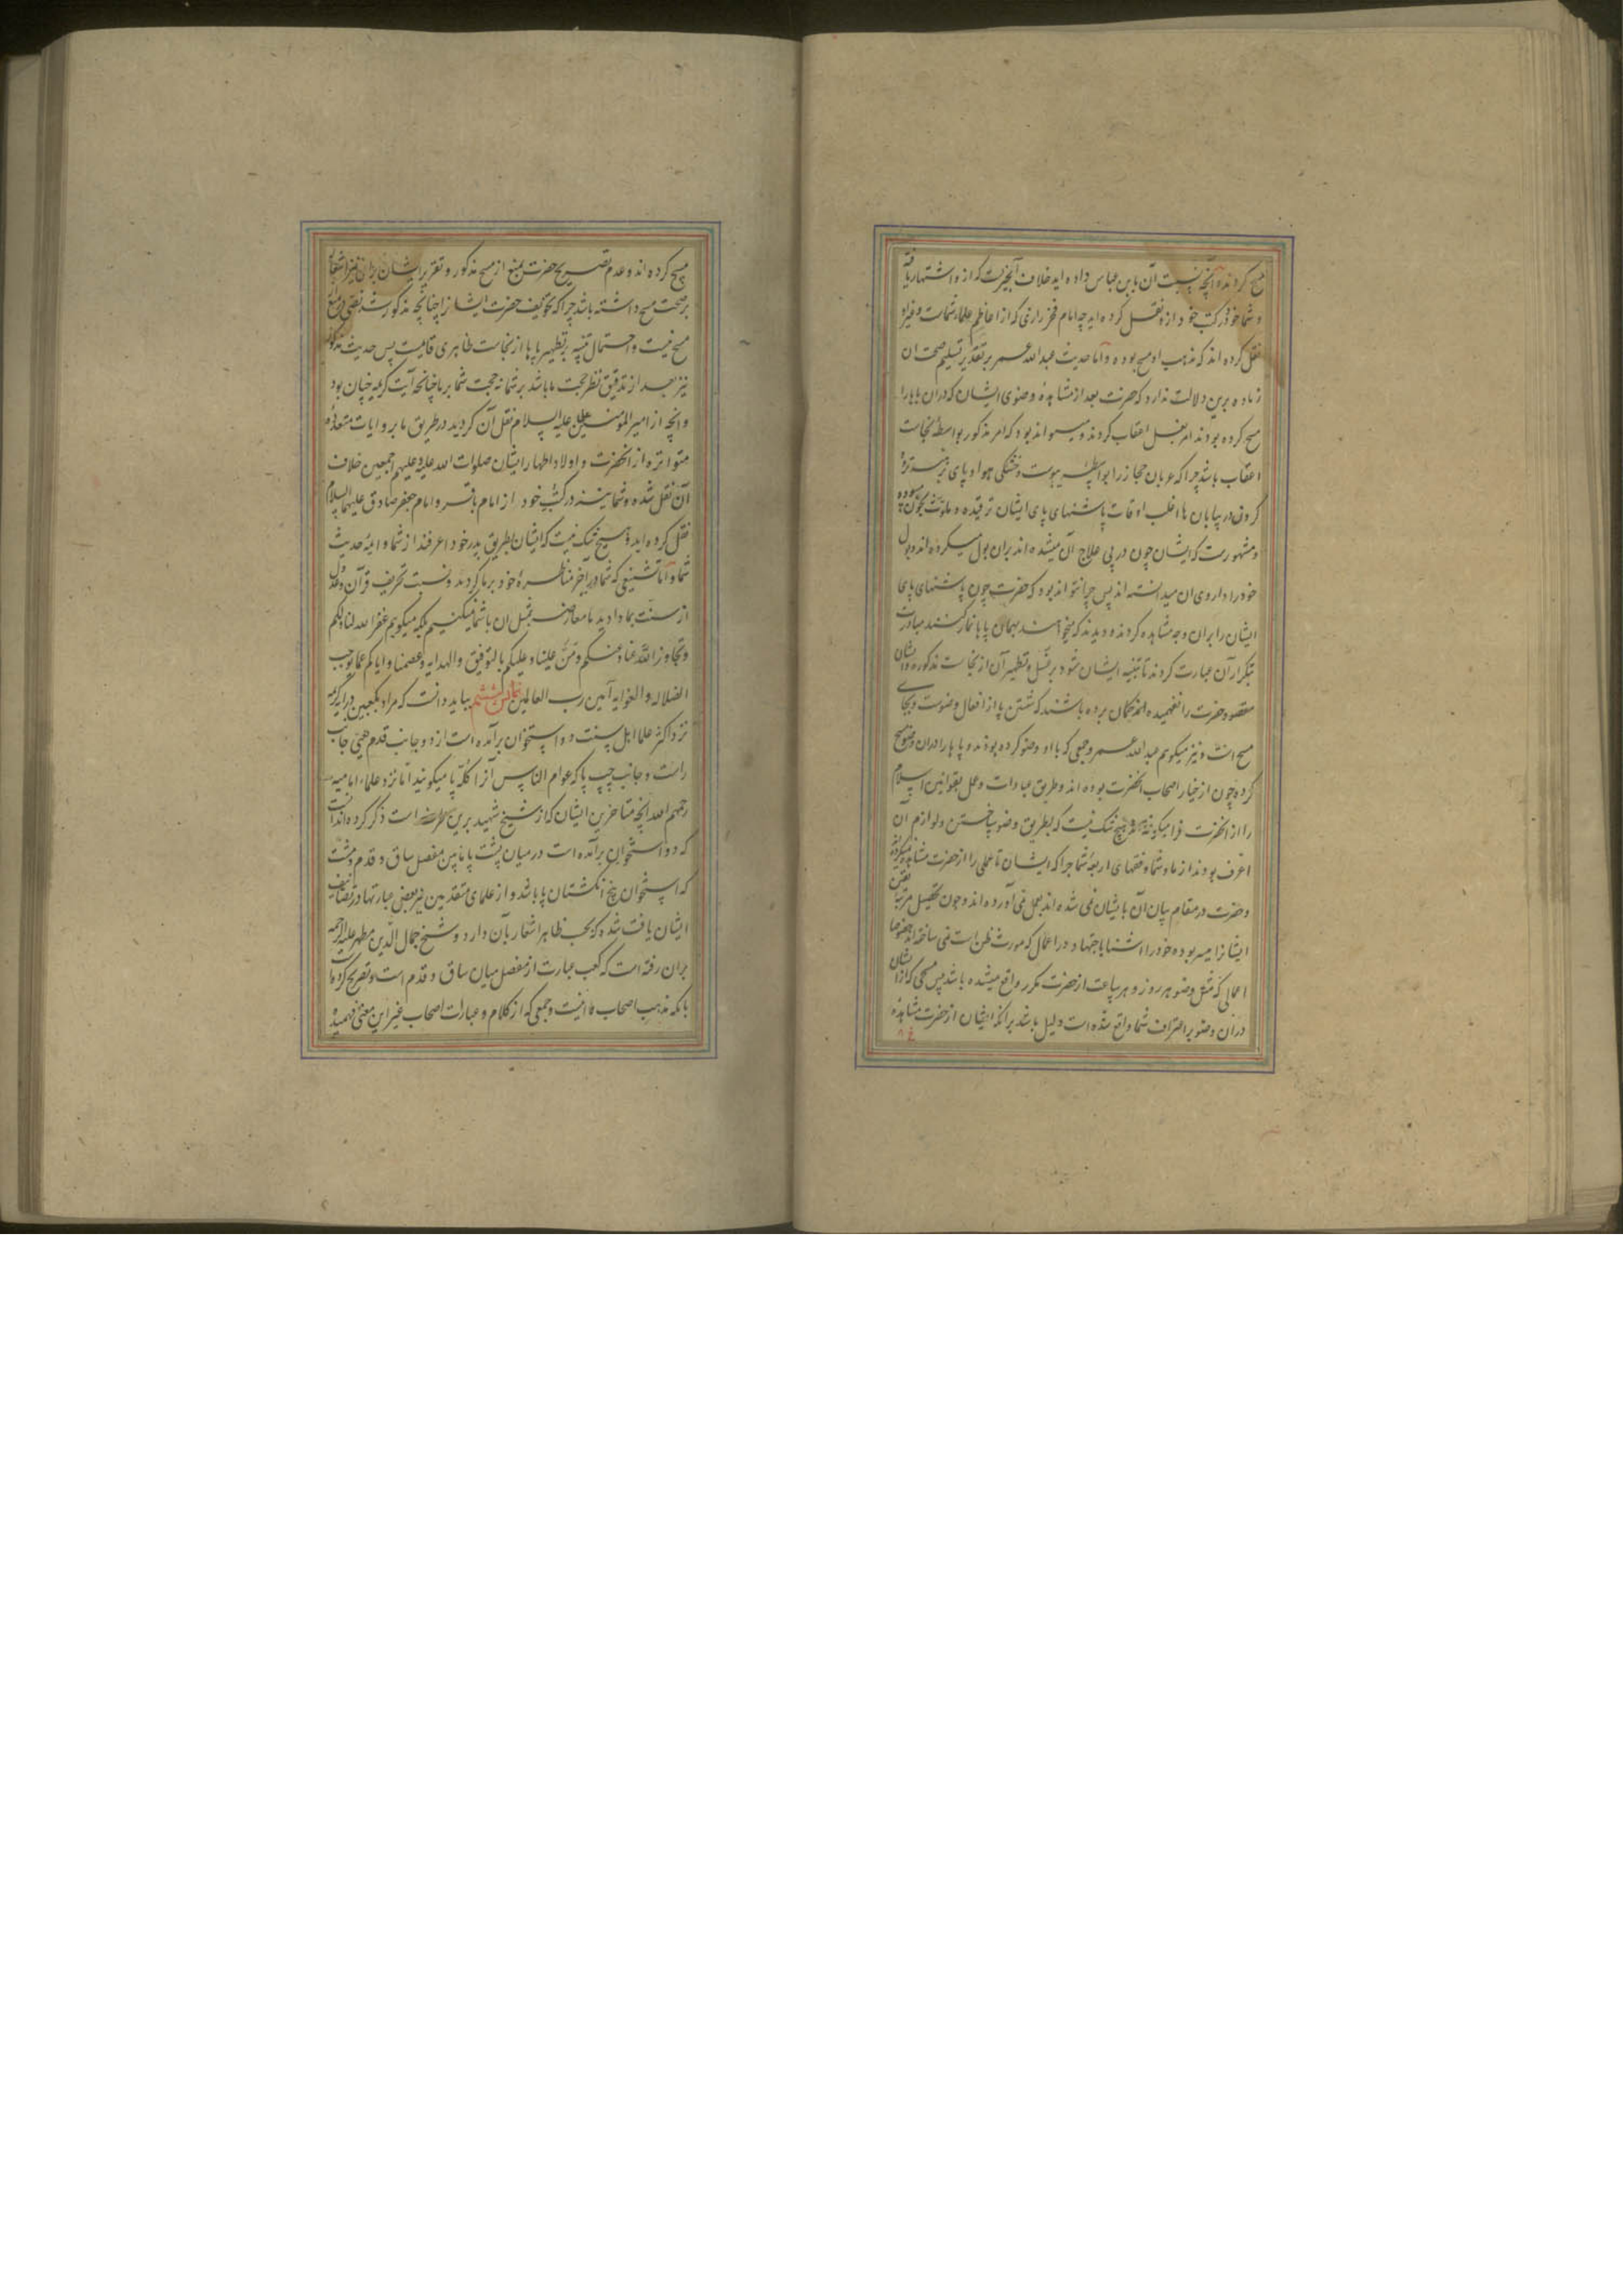 مسح کردند و آنچه نسبت آن بابن عباس داده اید خلاف آنچیزیست که ازو اشتهار یافته
و شما خود در کتب خود ازو نقل کرده اید چه امام فخر رازی که از اعاظم علماء شماست و غیر او
نقل کرده اند که مذهب او مسح بوده و اما حدیث عبد الله عمر بر تقدیر تسلیم صحت آن
زیاده برین دلالت ندارد که حضرت بعد از مشاهدهٔ وضوی ایشان که در آن پاها را
مسح کرده بودند امر بغسل اعقاب کردند و میتواند بود که امر مذکور بواسطهٔ نجاست
اعقاب باشد چرا که عربان حجاز را بواسطهٔ یبوست و خشکی هوا و پای برهنه تردد
کردن در بیابان ها اغلب اوقات پاشنهای پای ایشان ترقیده و ملوث بخون میبوده
و مشهورست که ایشان چون در پی علاج آن میشده اند بران بول میکرده اند و بول
خود را داروی آن میدانسته اند پس چرا نتواند بود که حضرت چون پاشنهای پای
ایشان را بران وجه مشاهده کردند و دیدند که میخواهند بهمان پا بنماز کنند مبادرت
بتکرار آن عبارت کردند تا تنبیه ایشان شود بر غسل و تطهیر آن از نجاست مذکوره و ایشان
مقصود حضرت را نفهمیده اند گمان برده باشند که شستن پا از افعال وضوست و بجای
مسح است و نیز میگویم عبد الله عمر و جمعی که با او وضو کرده بودند و پاها را در آن وضو مسح
کرده چون از خیار اصحاب آنحضرت بوده اند و طریق عبادات و عمل بقوانین اسلام
را از آنحضرت فرا میگرفته اند هیچ شک نیست که بطریق وضو ساختن و لوازم آن
اعرف بودند از ما و شما و فقهای اربعهٔ شما چرا که ایشان تا عملی را از حضرت مشاهده نمیکردند
و حضرت در مقام بیان آن با ایشان نمی شده اند بعمل نمی آورده اند و چون تحصیل مرتبهٔ یقین
ایشانرا میسر بوده خود را آشنا باجتهاد در اعمال که مورث ظن است نمی ساخته اند خصوصا
اعمالی که مثل وضو هر روز و هر ساعت از حضرت مکرر واقع میشده باشد پس مسحی که از ایشان
در آن وضو بر اعتراف شما واقع شده است دلیل باشد بر آنکه ایشان از حضرت مشاهدهٔ
مسح کرده اند و عدم تصریح حضرت بمنع از مسح مذکور و تقریر ایشان بران نیز اشعار
بر صحت مسح داشته باشد چرا که تخویف حضرت ایشانرا چنانچه مذکور شد نص در منع
مسح نیست و احتمال تنبیه بر تطهیر پاها از نجاست ظاهری قایمست پس حدیث مذکور
نیز بعد از تدقیق نظر حجت ما باشد بر شما نه حجت شما بر ما چنانچه آیت کریمه چنان بود
و آنچه از امیر المؤمنین علی علیه السلام نقل آن کردید در طریق ما بروایات متعدده
متواتره از آنحضرت و اولاد اطهار ایشان صلوات الله علیه و علیهم اجمعین خلاف
آن نقل شده و شما نیز در کتب خود از امام باقر و امام جعفر صادق علیهما السلام
نقل کرده اید و هیچ شک نیست که ایشان بطریق پدر خود اعرفند از شما و ائمهٔ حدیث
شما و اما تشنیعی که شما در آخر مناظرهٔ خود بر ما کردید و نسبت تحریف قرآن و عدول
از سنت بما دادید ما معارضه بمثل آن با شما نمیکنیم بلکه میگویم غفر الله لنا و لکم
و تجاوز الله عنا و عنکم و من علینا و علیکم بالتوفیق و الهدایه و عصمنا و ایاکم عما یوجب
الضلاله و الغوایه آمین رب العالمین مجلس ششم بباید دانست که مراد بکعبین در آیه کریمه
نزد اکثر علماء اهل سنت دو استخوان برآمده است از دو جانب قدم یعنی جانب
راست و جانب چپ پا که عوام الناس آنرا کلّه پا میگویند اما نزد علماء امامیه
رحمهم الله آنچه متاخرین ایشان که از شیخ شهید برین طرفست ذکر کرده اند آنست
که دو استخوان برآمده است در میان پشت پا مابین مفصل ساق و قدم و مشت
که استخوان پنج انگشتان پا باشد و از علمای متقدمین نیز بعض عبارتها در تصانیف
ایشان یافت شده که بحسب ظاهر اشعار بآن دارد و شیخ جمال الدین مطهر علیه الرحمه
بران رفته است که کعب عبارت از مفصل میان ساق و قدم است و تصریح کرده است
بآنکه مذهب اصحاب ما اینست و جمعی که از کلام و عبارات اصحاب غیر این معنی فهمیده